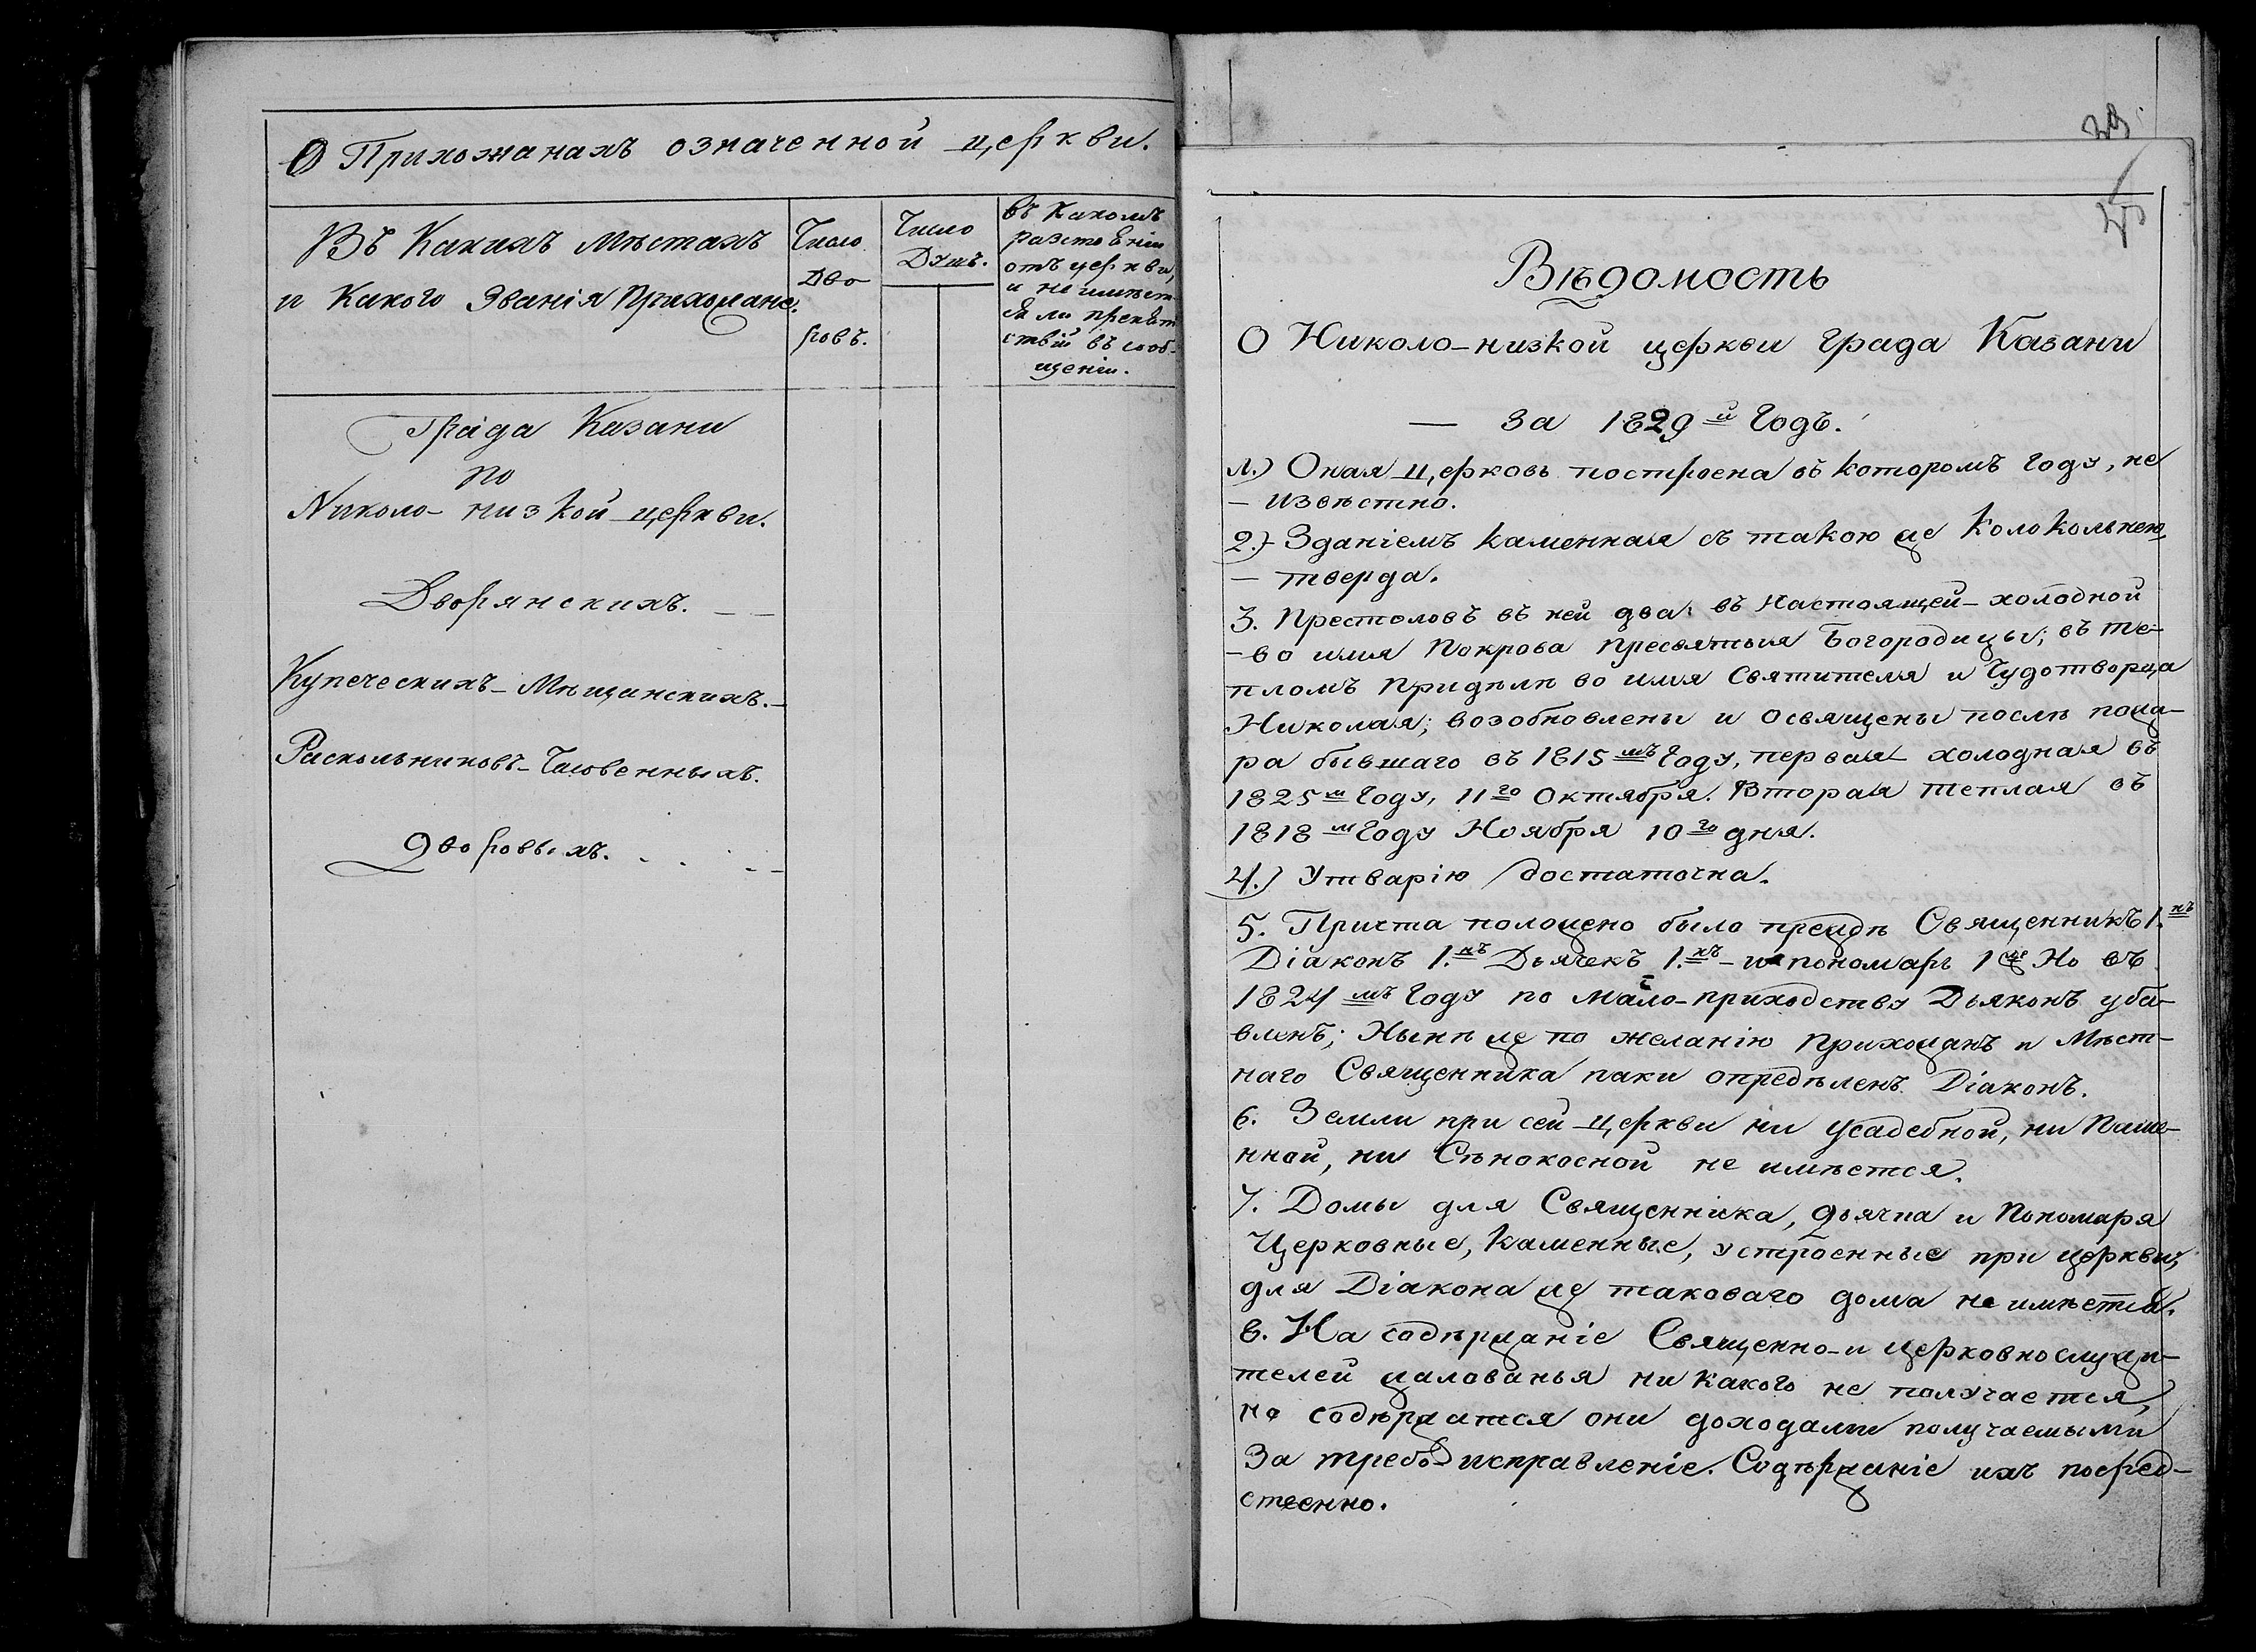 О Прихожанахъ означенной церкви.
Въ Какихъ Мѣстахъ
и Какого Званія Прихожане.
Число
Дво
ровъ.
Число
Душъ.
въ Какомъ
разстоѣніи
отъ церкви,
и не имѣет-
ся ли препят
ствій въ сооб-
щеніи.
Града Казани
по
Николо-низкой церкви.
Дворянскихъ.
Купеческихъ-Мѣщанскихъ.
Раскольниковъ-Часовенныхъ.
Дворовыхъ.
Вѣдомость
О Николо-низкой церкви града Казани
За 1829й Годъ.
1.) Оная церковь построена въ которомъ году, не
- извѣстно.
2.) Зданіемъ каменная съ такою же Колокольнею,
- тверда.
3. Престоловъ въ ней два: въ Настоящей-холодной
- во имя Покрова Пресвятыя Богородицы; въ те-
пломъ Придѣлѣ во имя Святителя и Чудотворца
Николая; возобновлены и освящены послѣ пожа-
ра бывшаго въ 1815мъ Году, первая холодная въ
1825м Году, 11го Октября. Вторая теплая въ
1818м Году Ноября 10го дня.
4.) Утварію достаточна.
5. Причта положено было прежде Священникъ 1.нъ
Діаконъ 1.нъ Дьячекъ 1.нъ - и пономарь 1 Но въ
1824мъ Году по Мало-приходству Дьяконъ уба-
вленъ; Нынѣ же по желанію Прихожанъ и Мѣст-
наго Священника паки опредѣленъ Діаконъ.
6. Земли при сей церкви ни усадебной, ни Паше-
нной, ни Сѣнокосной не имѣется.
7. Домы для Священника, Дьячка и Пономаря
Церковные, Каменные, устроенные при церкви,
для Діакона же таковаго дома не имѣется.
8. На содѣржаніе Священно-и церковнослужи-
телей жалованья ни какого не получается,
но содѣржатся они доходами получаемыми
За требо-исправленіе. Содѣржаніе ихъ посред-
ственно.